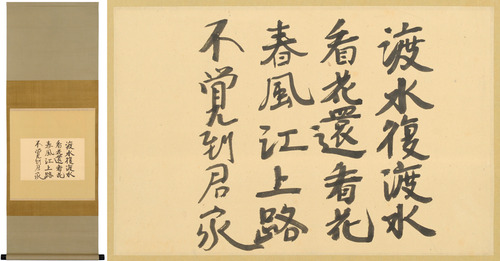 渡水復渡水
看花還看花
春風江上路
不覚到君家